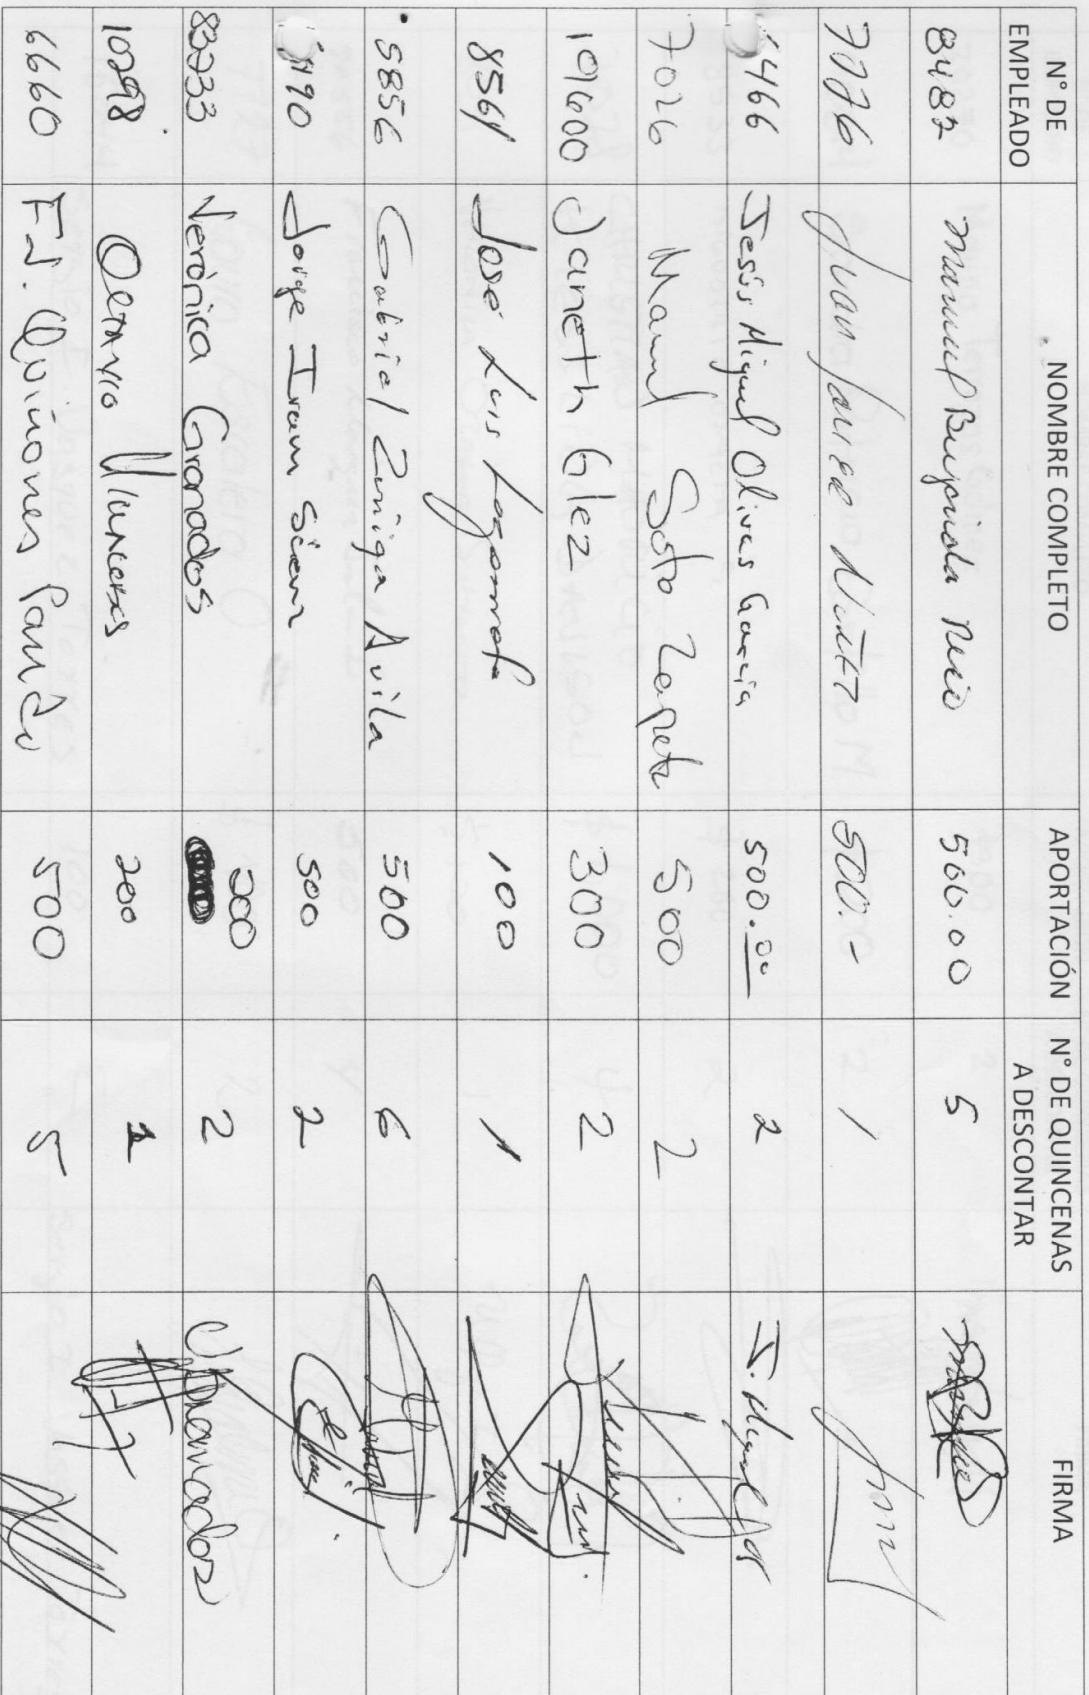 N° DE EMPLEADO NOMBRE COMPLETO APORTACIÓN N° DE QUINCENAS A DESCONTAR FIRMA
8487 Manuel 500.00 5
7076 Juan Javier 500.- 1
466 Jesús Miguel Olivas García 500.00 2 J. Miguel
7026 Manuel Soto Zapata 500 2
109600 Janeth Glez 300 2
8561 José Luis 100 1
5856 Gabriel Zuñiga Avila 500 6
490 Jorge Iram 500 2
83233 Verónica Granados 200 2 Granados
10298 Octavio 200 1
6660 Fd. Quiñones Pando 500 5